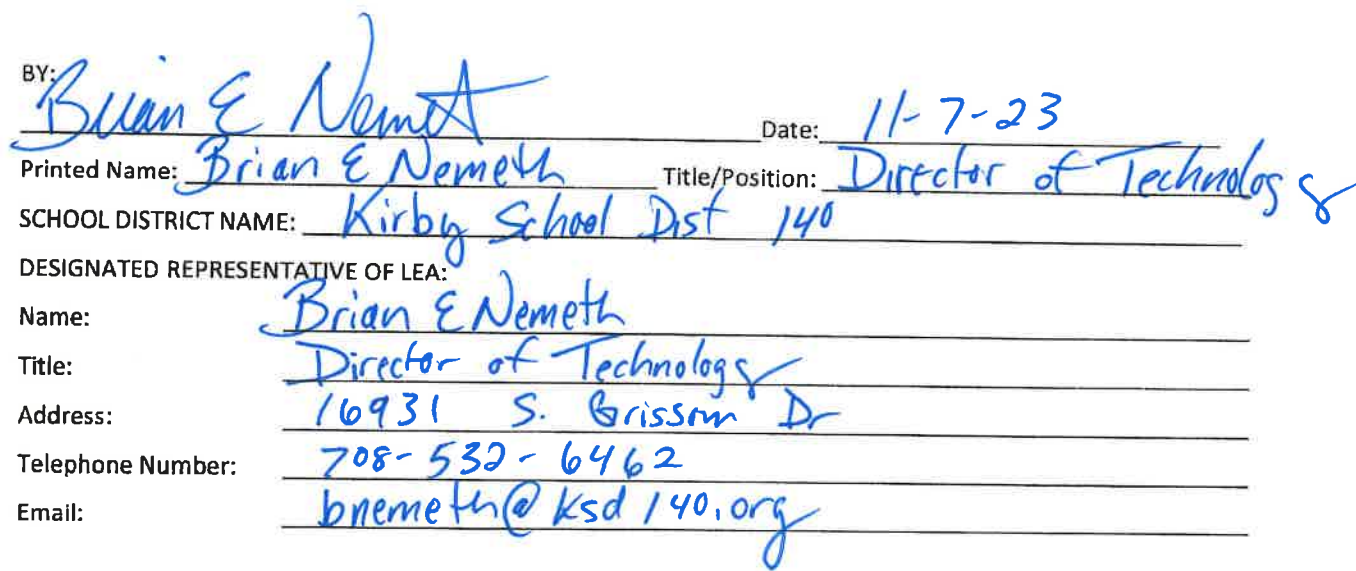 BY: Brian E Nemeth Date: 11-7-23
Printed Name: Brian E Nemeth Title/Position: Director of Technology
SCHOOL DISTRICT NAME: Kirby School Dist 140
DESIGNATED REPRESENTATIVE OF LEA:
Name: Brian E Nemeth
Title: Director of Technology
Address: 16931 S. Grissom Dr
Telephone Number: 708-532-6462
Email: bnemeth@ksd140.org